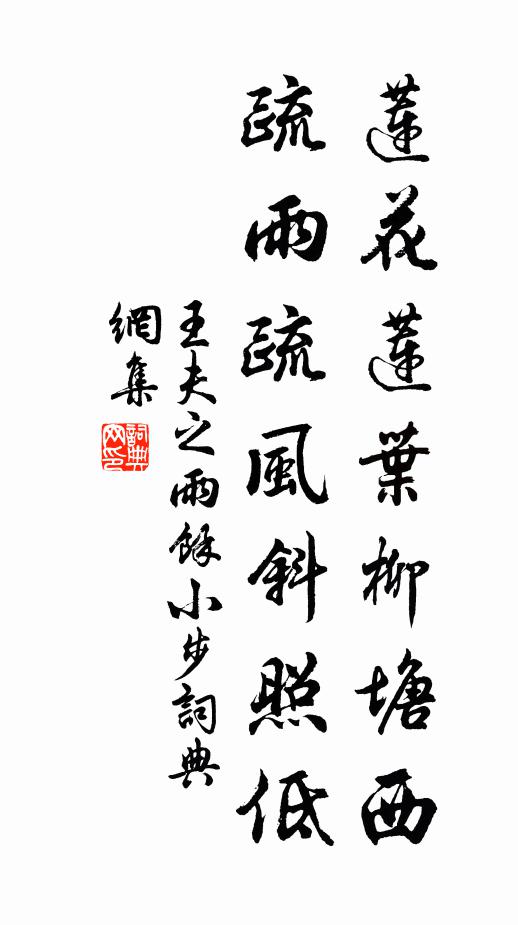 蓮花蓮葉柳塘西
疏雨疏風斜照低
王夫之雨餘小步詞典
網集
詞典網印